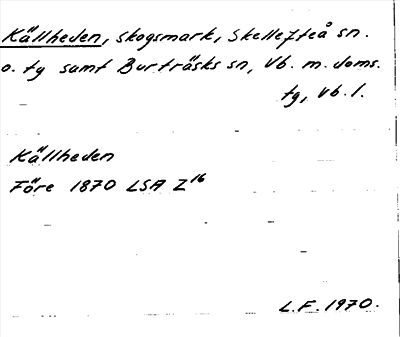 Källheden, skogsmark, Skellefteå sn.
o. tg samt Burträsks sn, Vb. m. doms.
tg, Vb. l.
Källheden
Före 1870 LSA Z16
L.F. 1970.